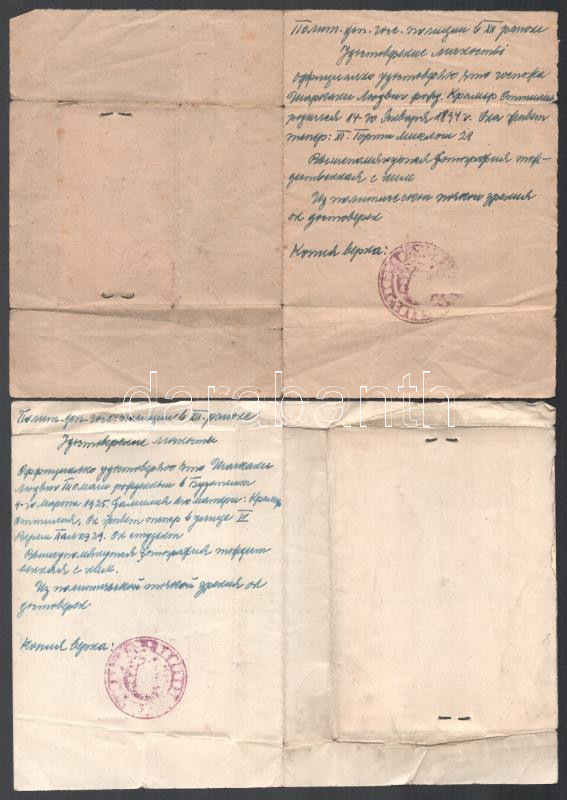 Полит. деп. гос. полиции в XII районе
Удостверение личности
Оффициалко удостоверяю что госпожа
Шаркаки Людвиг рожд. Крамер Оттилия
родился 14-го Января 1894 г. Она живет
тепер: XI. Горти Миклош 29
Вышепомянутая фотография тож-
дественная с ним
Из политической точкой зрения
он достоверен
Копия верна:
darabanth
Полит. деп. гос. полиции в XI. районе
Удостверение личности
Оффициалко удостоверяю что Шаркаки
Людвиг Томаш рожденный в Будапешт
4-го марта 1925. Фамилия его матери: Крамер
Оттилия, Он живет тепер в улице IV
Вереш Палкэ 29. Он студент
Вышеупомянутая фотография тождест
венная с ним.
Из политической точкой зрения он
достоверен
Копия верна: